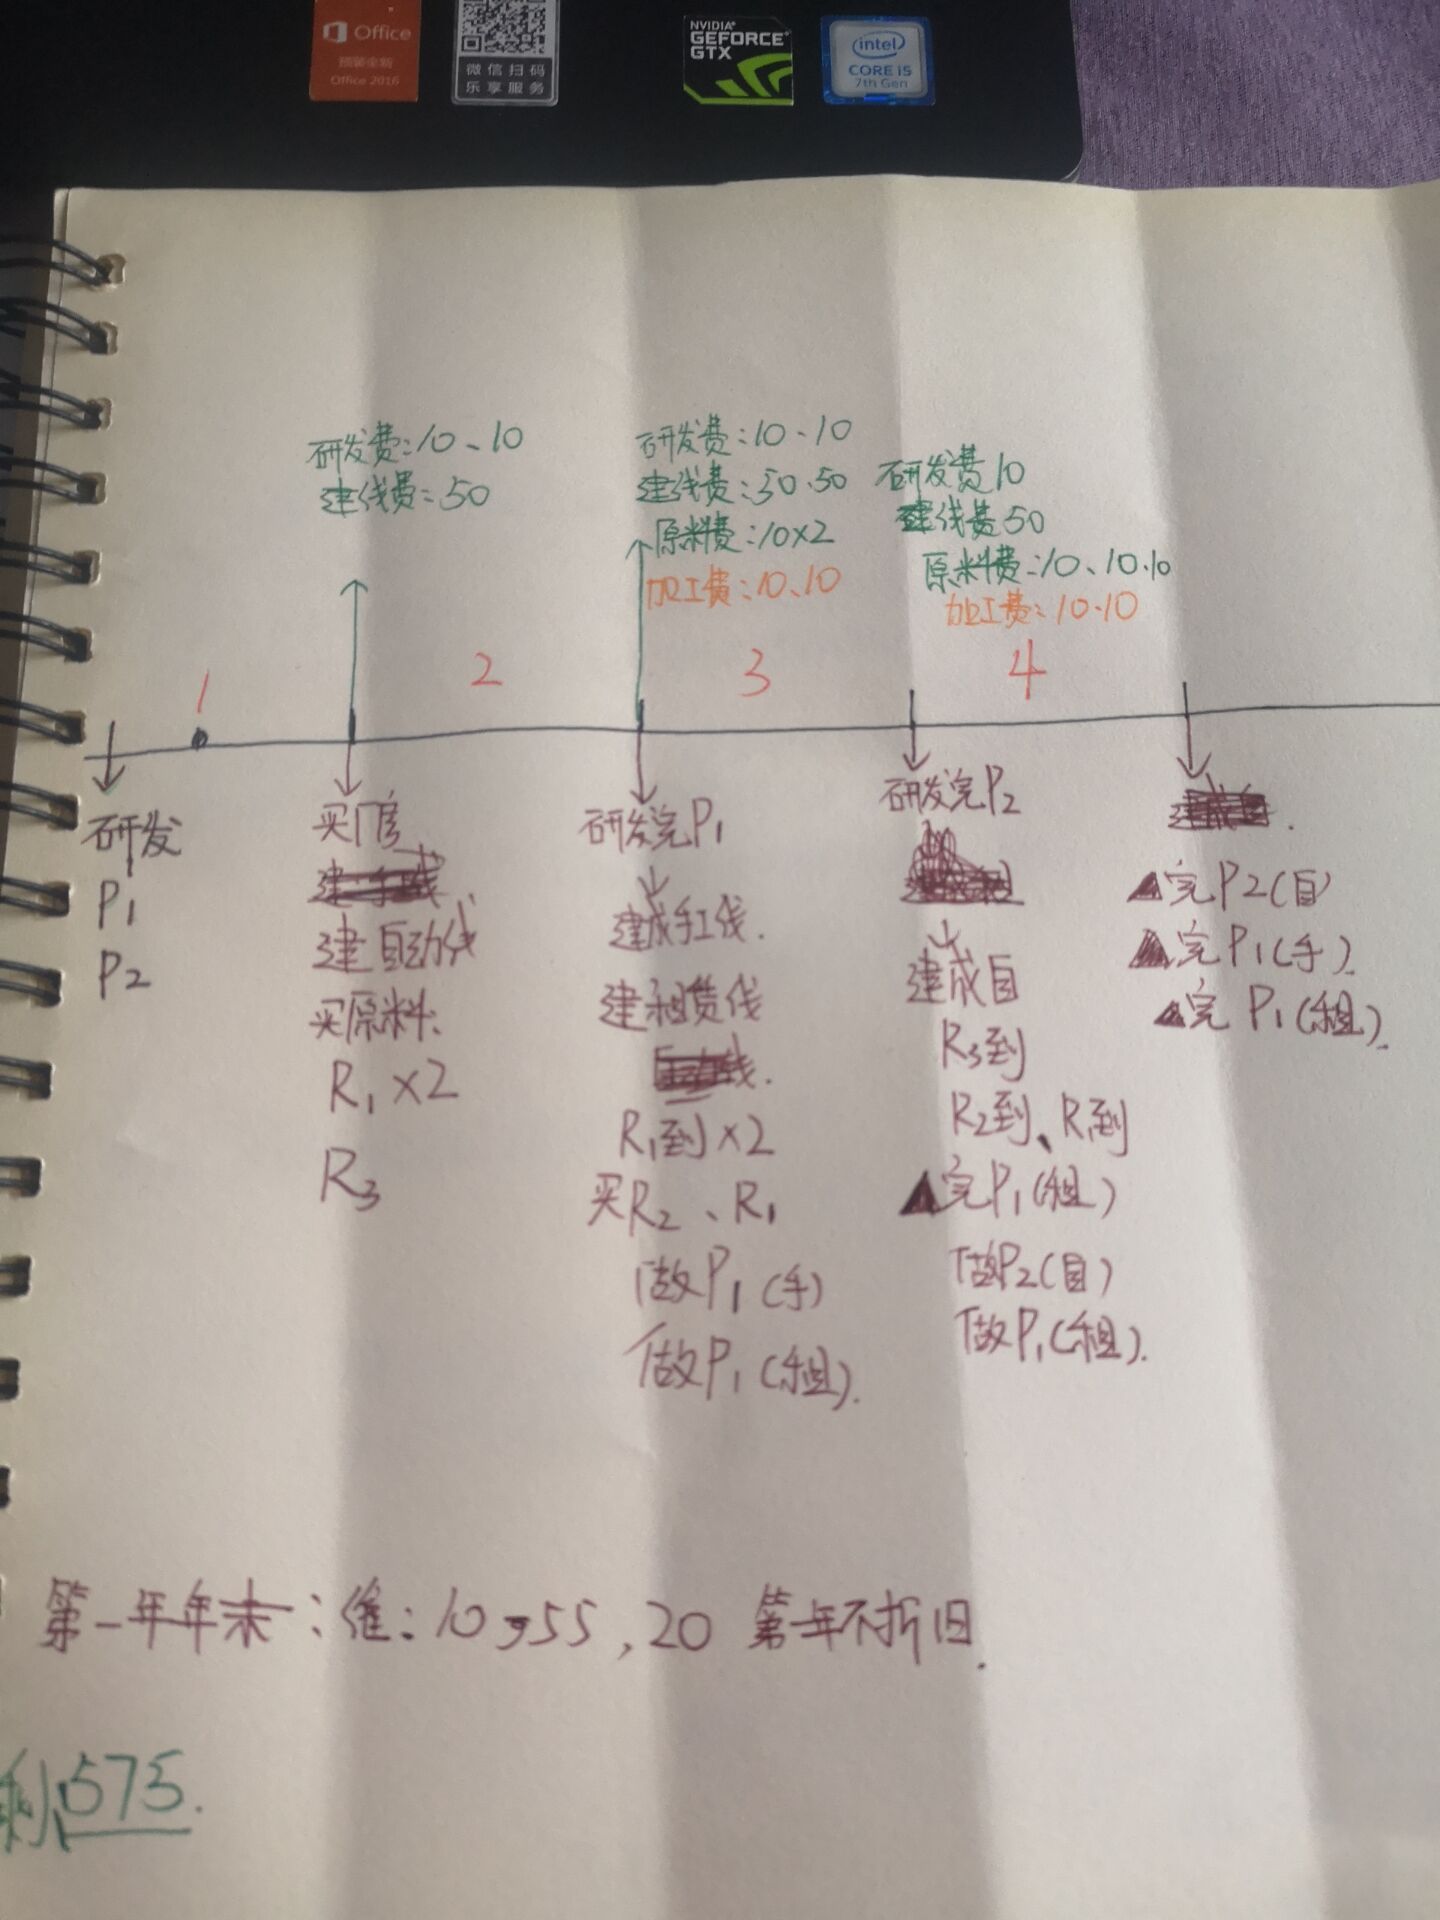 Office
预装全新
Office 2016
微信扫码
乐享服务
NVIDIA
GEFORCE
GTX
intel
CORE i5
7th Gen
研发费:10、10
建线费:50
研发费:10、10
建线费:50、50
原料费:10×2
加工费:10、10
研发费10
建线费50
原料费:10、10、10
加工费:10、10
1
2
3
4
研发
P1
P2
买厂房
建自动线
买原料:
R1×2
R3
研发完P1
建成手工线.
建租赁线
R1到×2
买R2、R1
做P1(手)
做P1(租).
研发完P2
建成自
R3到
R2到、R1到
▲完P1(租)
做P2(自)
做P1(租).
▲完P2(自)
▲完P1(手).
▲完P1(租).
第一年年末:维:10,55,20 第一年不折旧.
剩575.